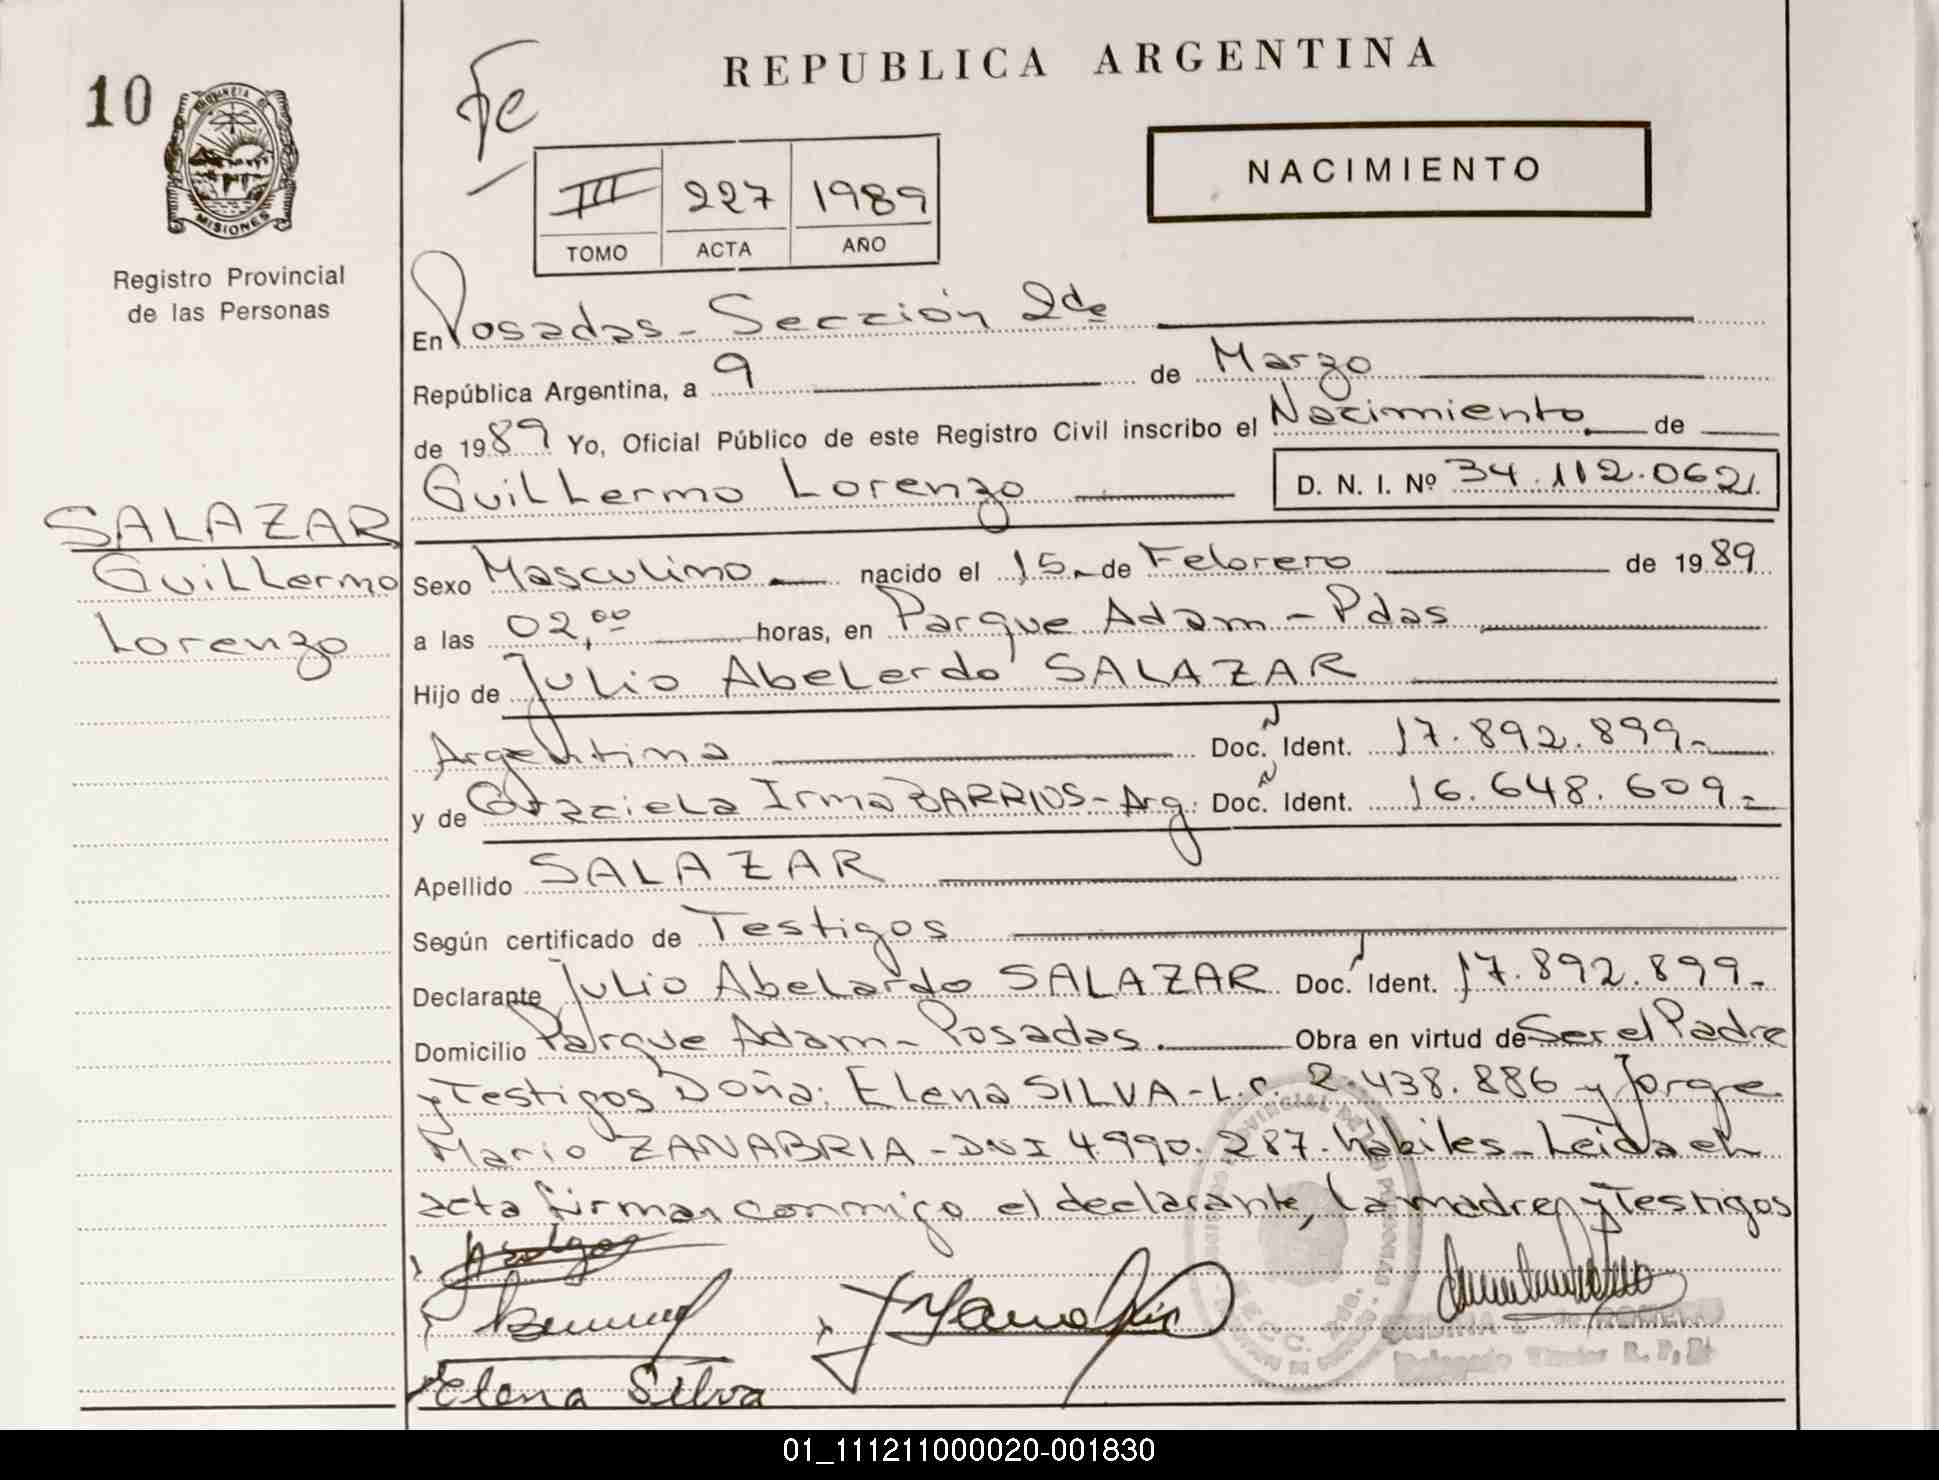 10
PROVINCIA DE
MISIONES
Registro Provincial
de las Personas
REPUBLICA ARGENTINA
NACIMIENTO
III 227 1989
TOMO ACTA AÑO
En Posadas - Sección 2da
República Argentina, a 9 de Marzo
de 1989 Yo, Oficial Público de este Registro Civil inscribo el Nacimiento de
Guillermo Lorenzo D. N. I. Nº 34.112.062
SALAZAR
Guillermo
Lorenzo
Sexo Masculino nacido el 15 - de Febrero de 1989
a las 02,00 horas, en Parque Adam - Pdas
Hijo de Julio Abelardo SALAZAR
Argentina Doc. Ident. 17.892.899-
y de Graciela Irma BARRIOS - Arg. Doc. Ident. 16.648.609-
Apellido SALAZAR
Según certificado de Testigos
Declarante Julio Abelardo SALAZAR Doc. Ident. 17.892.899-
Domicilio Parque Adam - Posadas. Obra en virtud de Ser el Padre
y Testigos Doña: Elena SILVA - L.C. 2.438.886 y Jorge
Mario ZANABRIA - DNI 4.990.287. hábiles - Leida el
acta firman conmigo el declarante, la madre y Testigos
Elena Silva
01_111211000020-001830